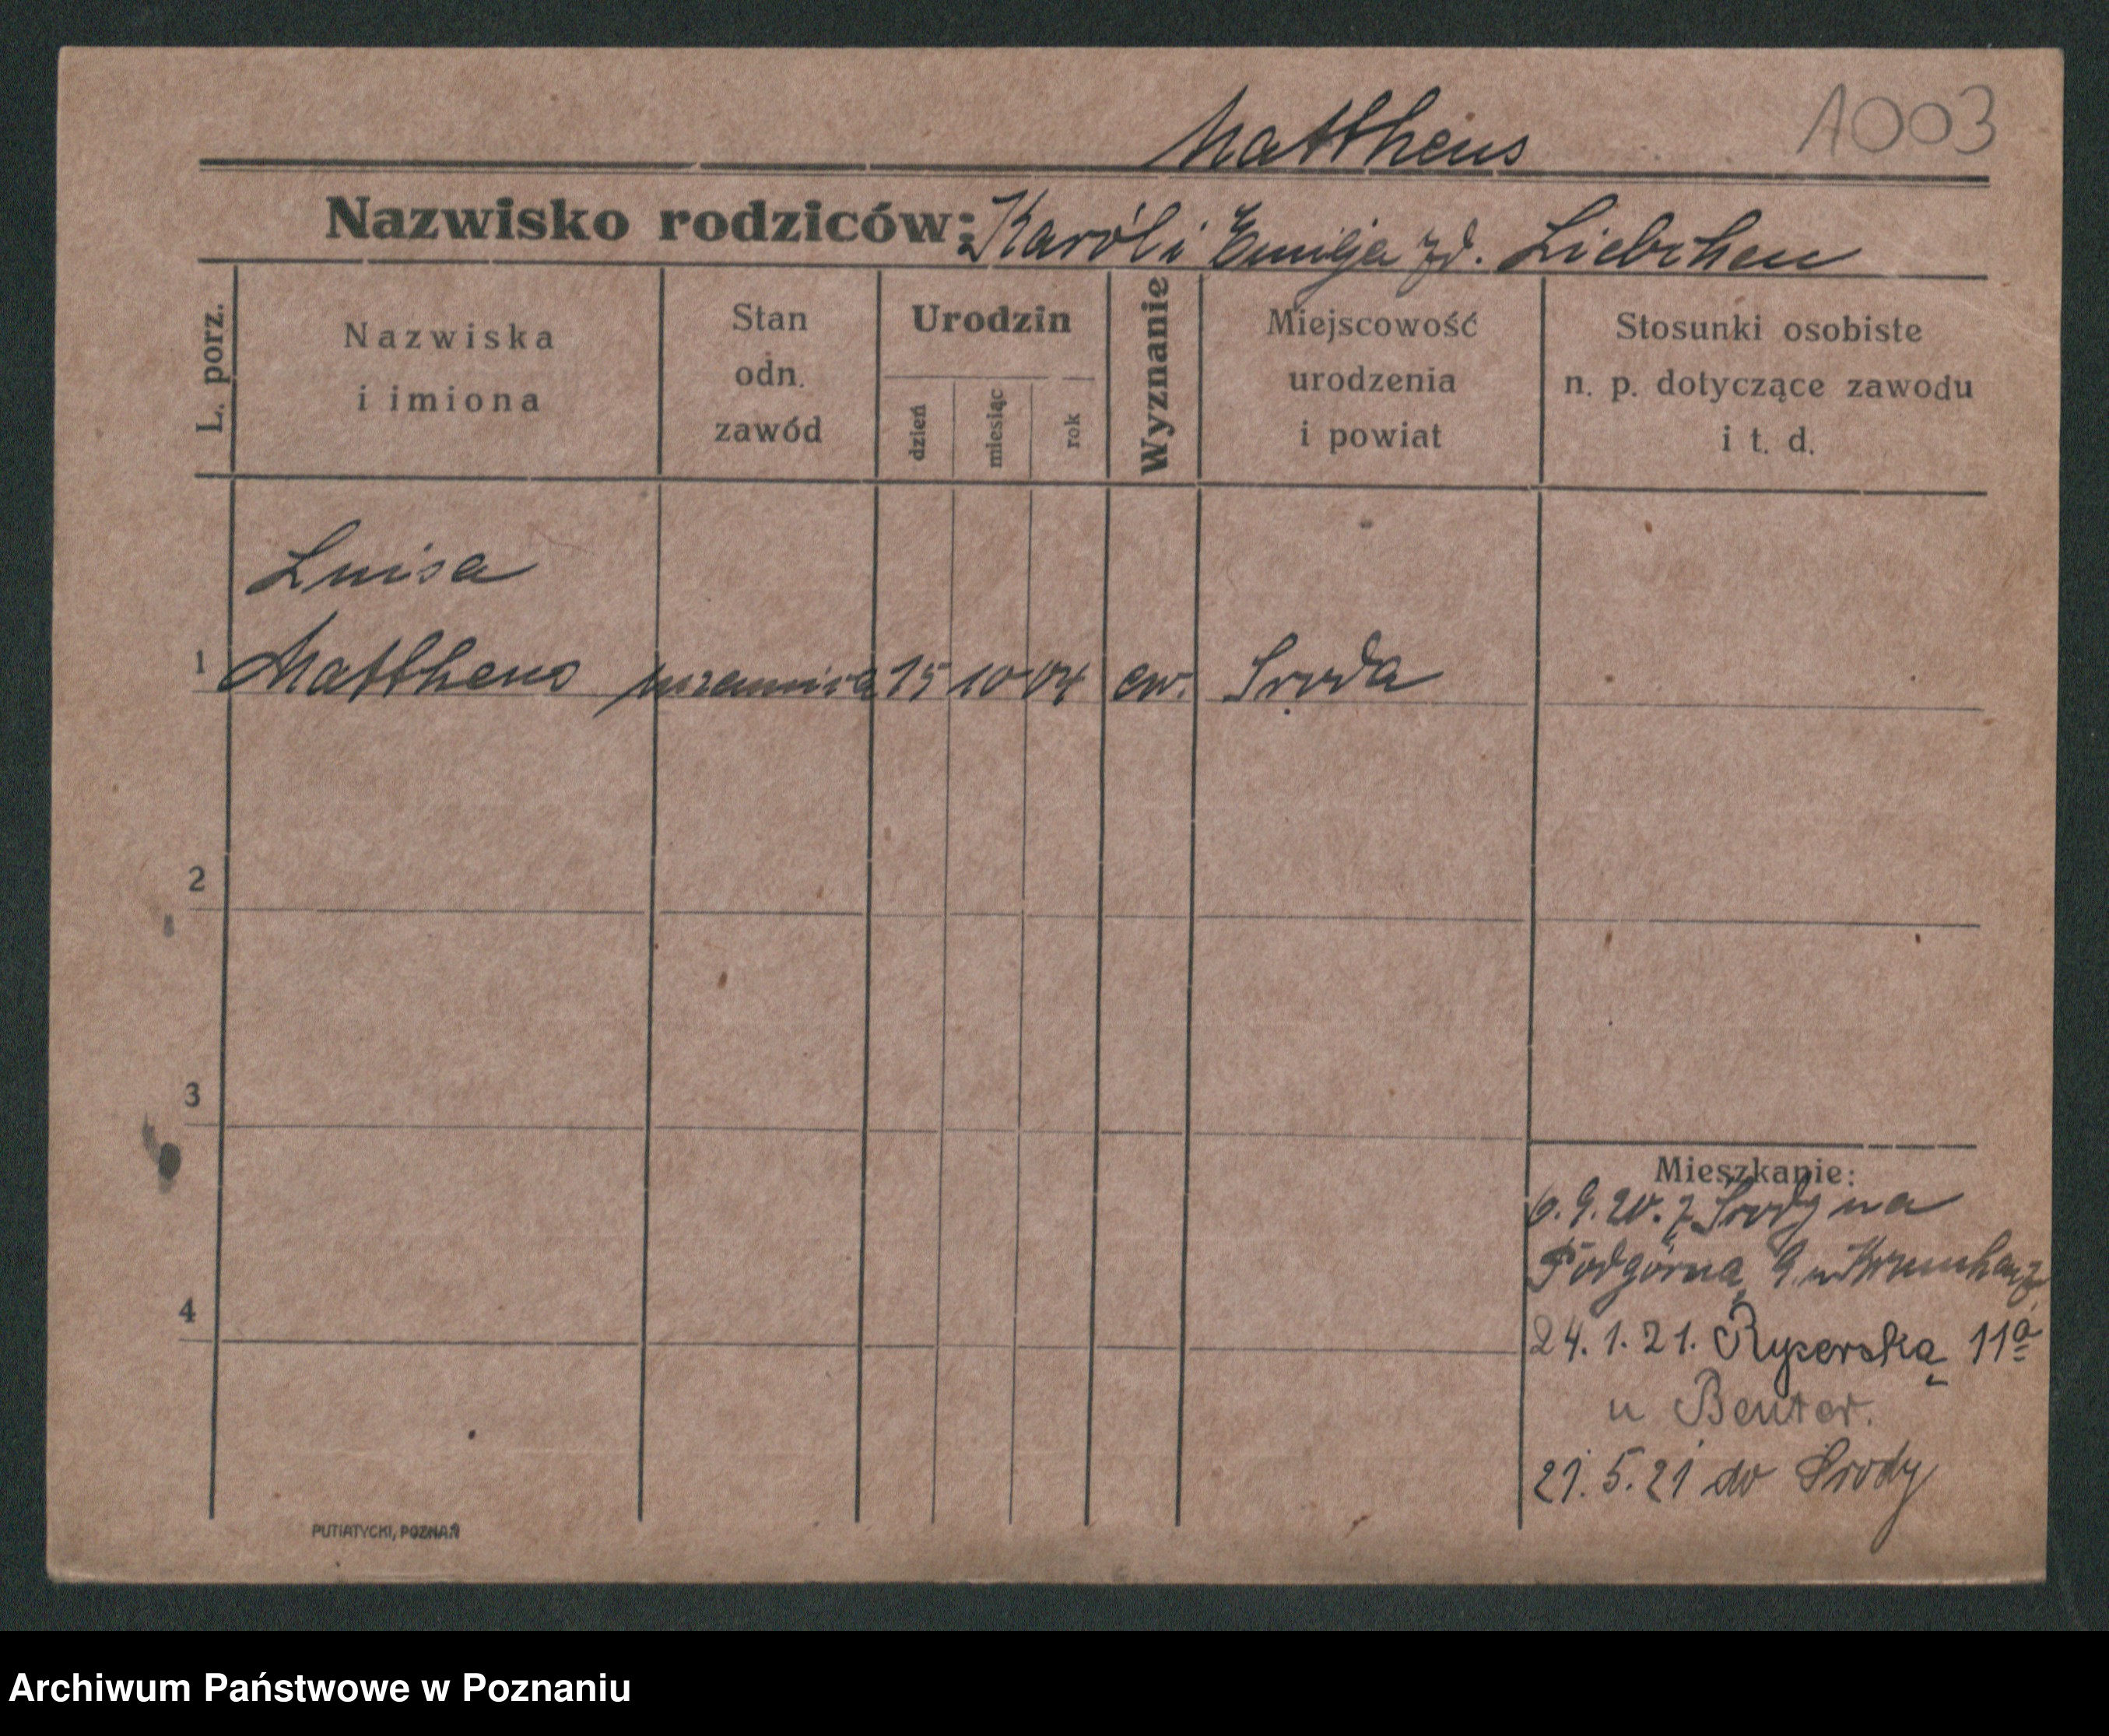 1003
Mattheus
Nazwisko rodziców: Karól i Emilja zd. Liebchen
L. porz.
Nazwiska
i imiona
Stan
odn.
zawód
Urodzin
dzień
miesiąc
rok
Wyznanie
Miejscowość
urodzenia
i powiat
Stosunki osobiste
n. p. dotyczące zawodu
i t. d.
Luisa
1 Mattheus uczennica 15 10 04 ew. Środa
2
3
4
Mieszkanie:
6.9.20. z Środy na
Podgórną 9 u
24.1.21. Rycerską 11a
u Beuter.
21.5.21 do Środy
PUTIATYCKI, POZNAŃ
Archiwum Państwowe w Poznaniu